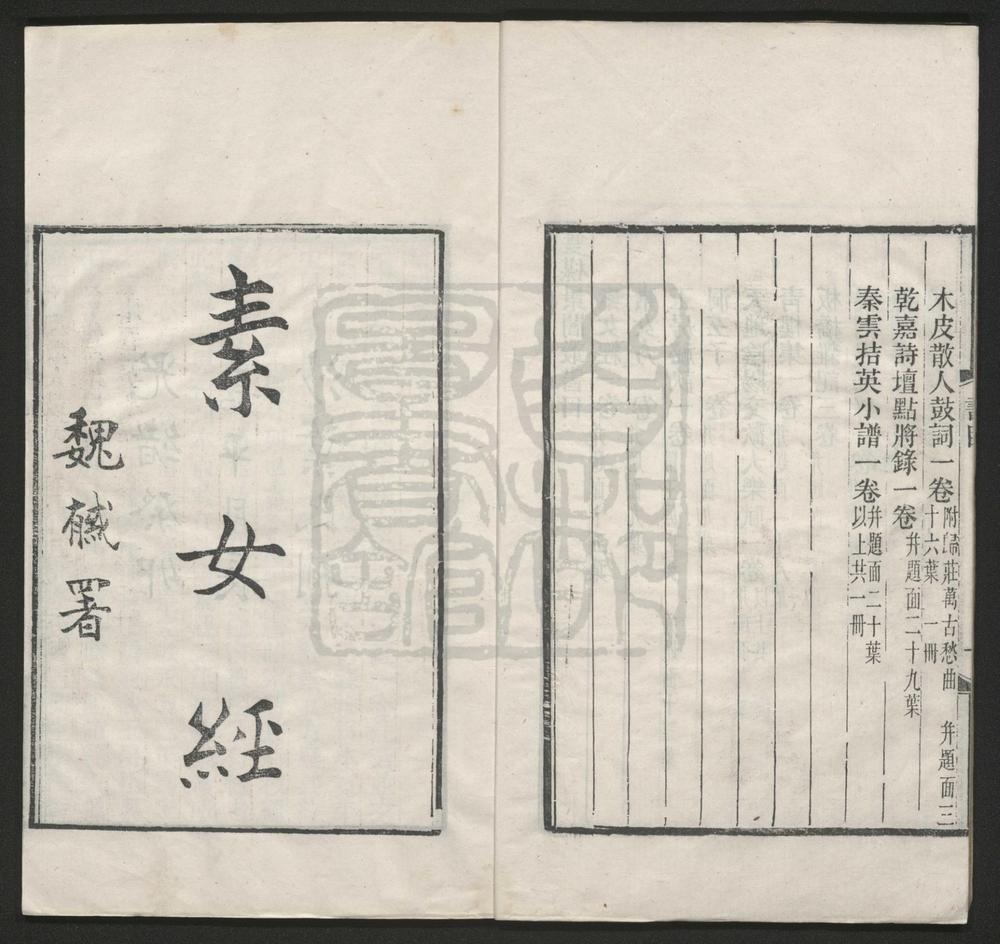 木皮散人鼓詞一卷附歸莊萬古愁曲 幷題面三十六葉 一冊
乾嘉詩壇點將錄一卷幷題面二十九葉
秦雲擷英小譜一卷幷題面二十葉以上共一冊
書目
一
素女經
魏 署